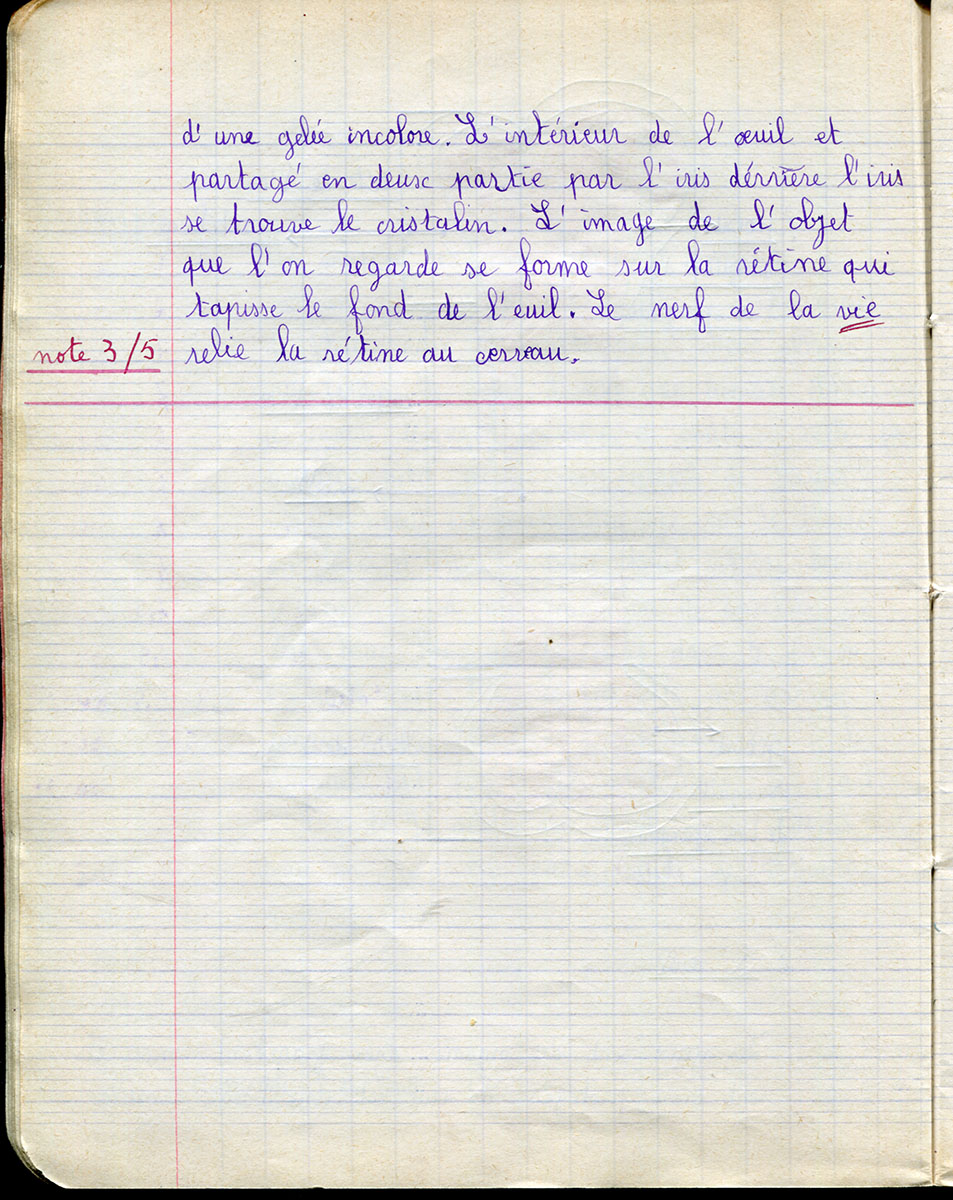 d'une gelée incolore. L'intérieur de l'œuil et
partagé en deux partie par l'iris dérrière l'iris
se trouve le cristalin. L'image de l'objet
que l'on regarde se forme sur la rétine qui
tapisse le fond de l'euil. Le nerf de la vie
note 3/5 relie la rétine au cerveau.